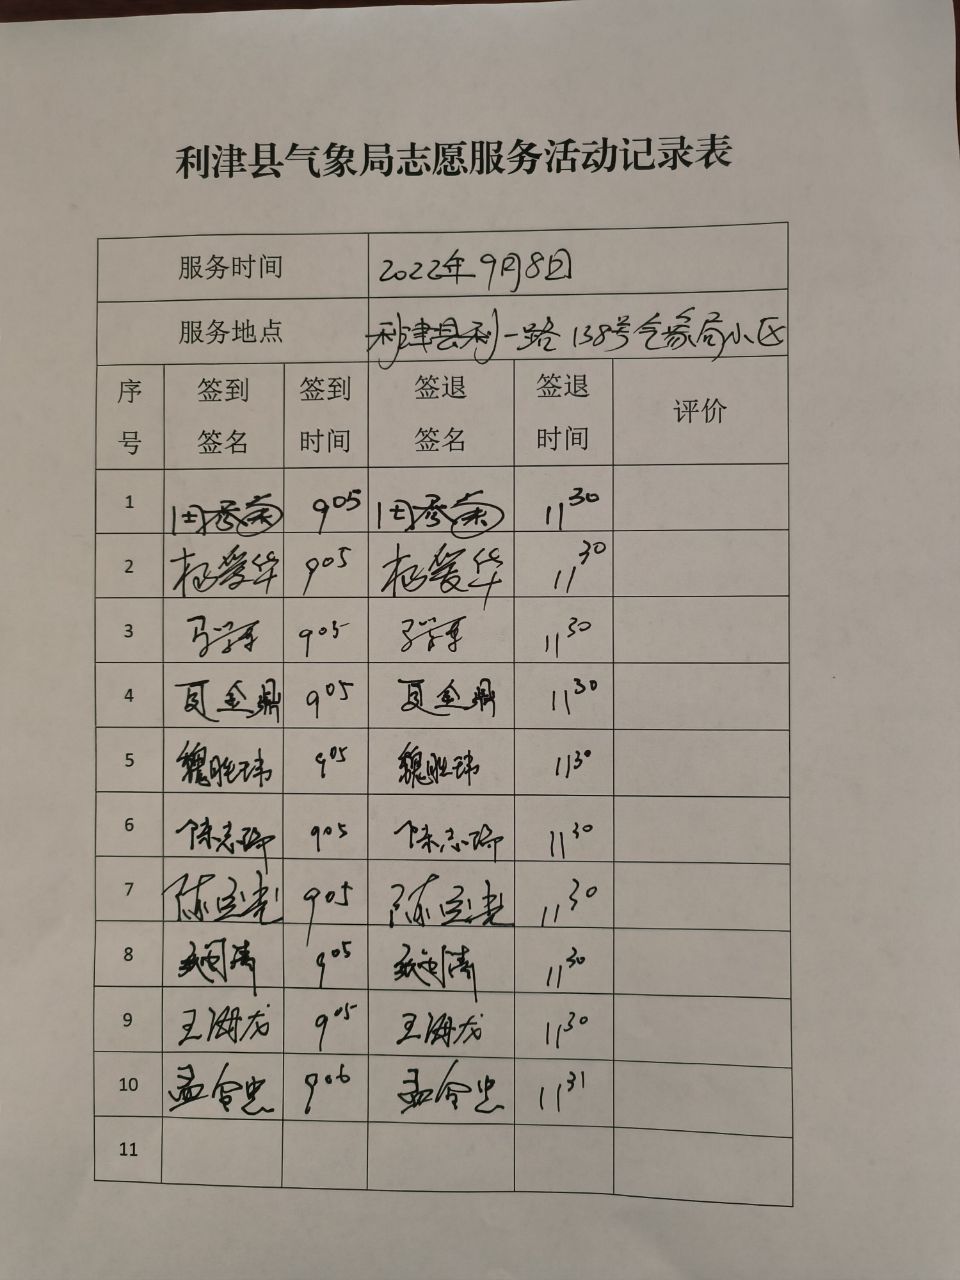 利津县气象局志愿服务活动记录表
服务时间 2022年9月8日
服务地点 利津县利一路138号气象局小区
序号 签到签名 签到时间 签退签名 签退时间 评价
1 田秀荣 9 05 田秀荣 11 30
2 杨爱华 9 05 杨爱华 11 30
3 9 05 11 30
4 金鼎 9 05 金鼎 11 30
5 魏胜玮 9 05 魏胜玮 11 30
6 陈志瑞 9 05 陈志瑞 11 30
7 陈宝光 9 05 陈宝光 11 30
8 9 05 11 30
9 王海龙 9 05 王海龙 11 30
10 孟令忠 9 06 孟令忠 11 31
11